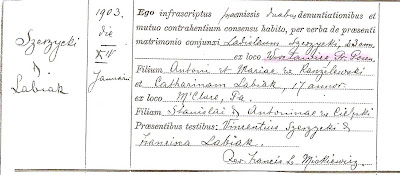 Szerzycki
&
Labiak
1903.
die
XIV
Januarii
Ego infrascriptus praemissis duabus denuntiationibus et
mutuo contrahentium consensu habito, per verba de praesenti
matrimonio conjunxi Ladislaum Szerzycki, 23 ann.
ex loco
Filium Antoni et Mariae ex Kanzilewski
et Catharinam Labiak, 17 annor.
ex loco M'Clure, Pa.
Filiam Stanislai & Antoninae ex
Praesentibus testibus: Vincentius Szerzycki &
Francisca Labiak.
Rev. Francis L. Mickiewicz.